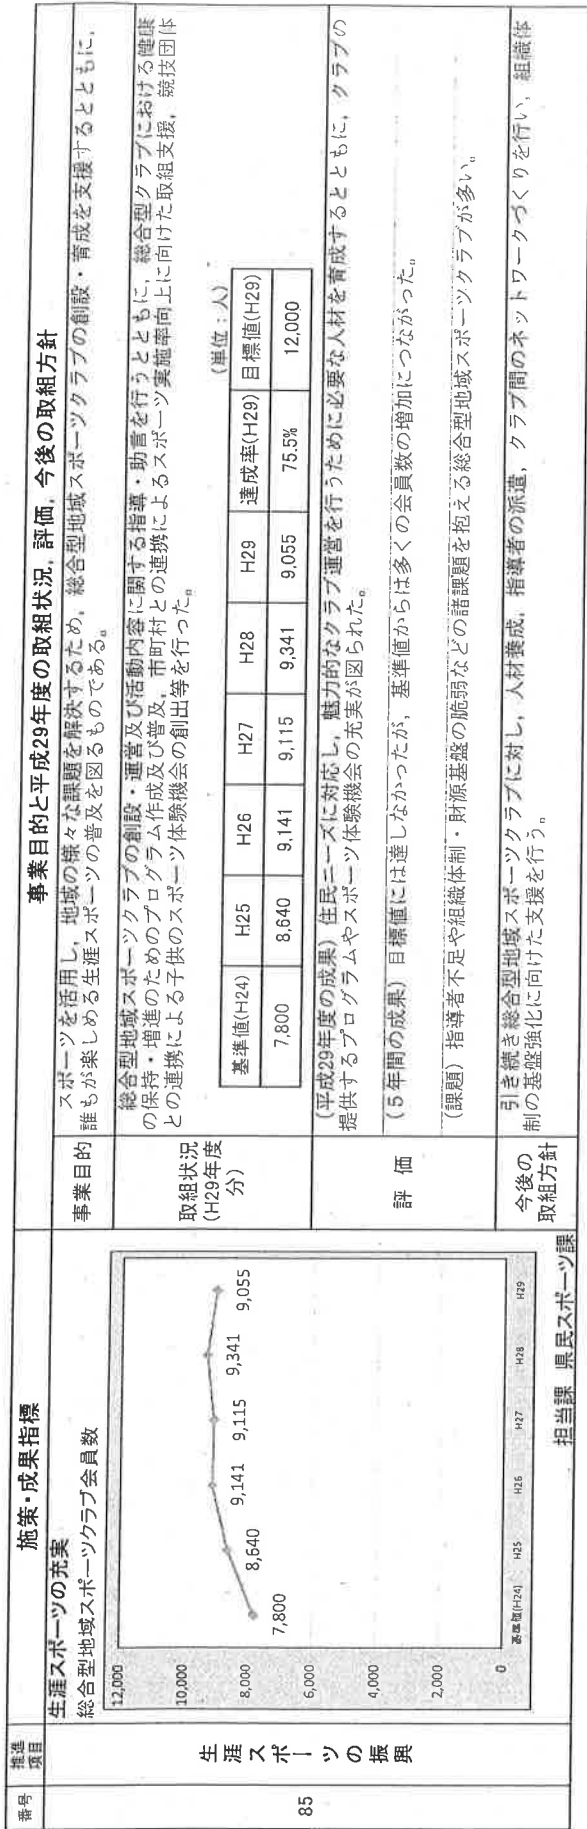 番号
推進
項目
施策・成果指標
事業目的と平成29年度の取組状況，評価，今後の取組方針
85
生涯スポーツの振興
生涯スポーツの充実
総合型地域スポーツクラブ会員数
12,000
10,000
8,000
6,000
4,000
2,000
0
7,800
8,640
9,141
9,115
9,341
9,055
基準値(H24)
H25
H26
H27
H28
H29
担当課 県民スポーツ課
事業目的
スポーツを活用し，地域の様々な課題を解決するため，総合型地域スポーツクラブの創設・育成を支援するとともに，
誰もが楽しめる生涯スポーツの普及を図るものである。
取組状況
(H29年度
分)
総合型地域スポーツクラブの創設・運営及び活動内容に関する指導・助言を行うとともに，総合型クラブにおける健康
の保持・増進のためのプログラム作成及び普及，市町村との連携によるスポーツ実施率向上に向けた取組支援，競技団体
との連携による子供のスポーツ体験機会の創出等を行った。
(単位：人)
基準値(H24) H25 H26 H27 H28 H29 達成率(H29) 目標値(H29)
7,800 8,640 9,141 9,115 9,341 9,055 75.5% 12,000
評 価
(平成29年度の成果）住民ニーズに対応し，魅力的なクラブ運営を行うために必要な人材を育成するとともに，クラブの
提供するプログラムやスポーツ体験機会の充実が図られた。
(５年間の成果）目標値には達しなかったが，基準値からは多くの会員数の増加につながった。
(課題）指導者不足や組織体制・財源基盤の脆弱などの諸課題を抱える総合型地域スポーツクラブが多い。
今後の
取組方針
引き続き総合型地域スポーツクラブに対し，人材養成，指導者の派遣，クラブ間のネットワークづくりを行い，組織体
制の基盤強化に向けた支援を行う。